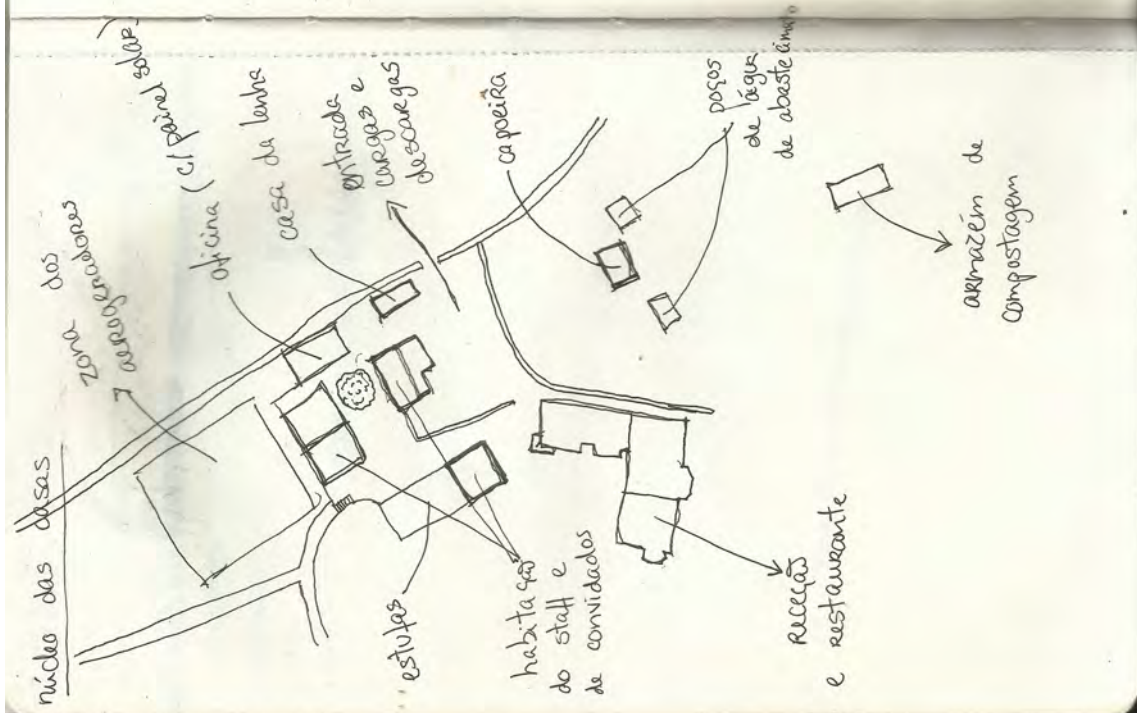 núcleo das casas
zona dos
7 aerogeradores
oficina (c/ painel solar)
casa da lenha
entrada
cargas e
descargas
capoeira
poços
de água
de abastecimento
armazém de
compostagem
estufas
habitação
do staff e
de convidados
receção
e restaurante